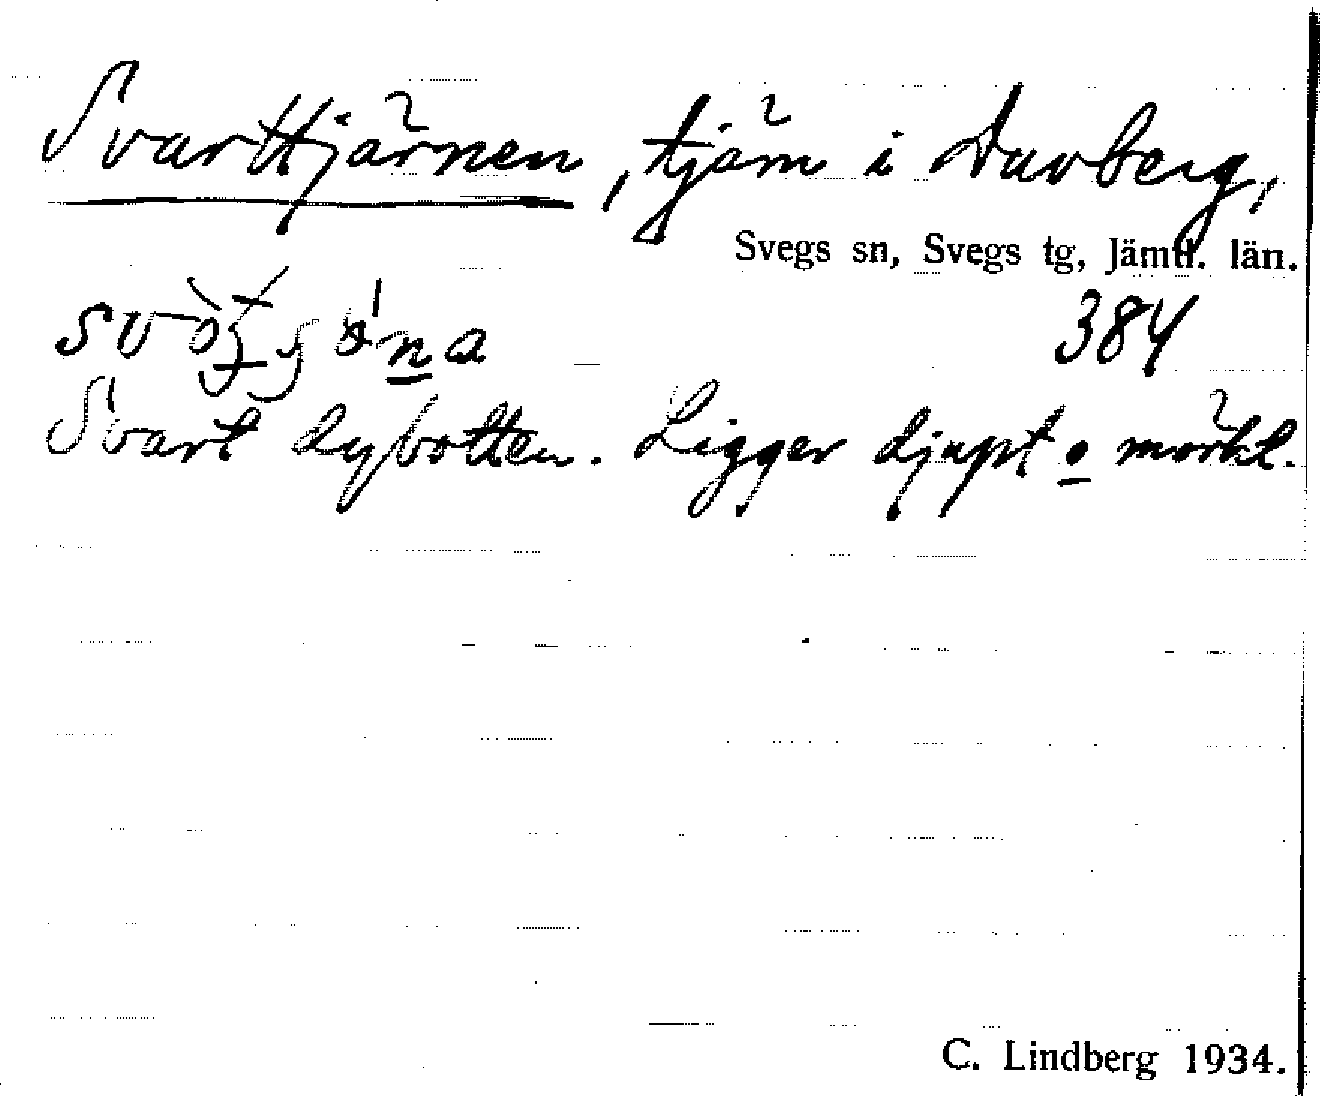 Svarttjärnen, tjärn i Duvberg,
Svegs sn, Svegs tg, Jämtl. län.
384
Svart dybotten. Ligger djupt o mörkt.
C. Lindberg 1934.